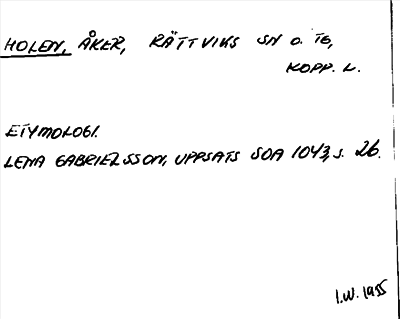 HOLEN, ÅKER, RÄTTVIKS SN O. TG,
KOPP. L.
ETYMOLOGI.
LENA GABRIELSSON, UPPSATS SOA 1043, S. 26.
I.W. 1955